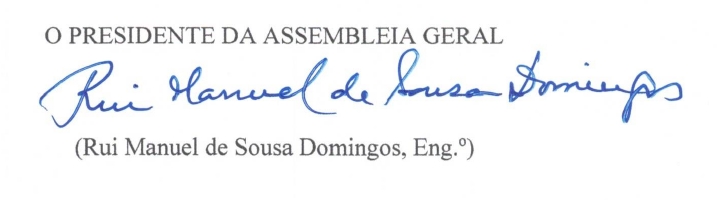 O PRESIDENTE DA ASSEMBLEIA GERAL
Rui Manuel de Sousa Domingos
(Rui Manuel de Sousa Domingos, Eng.º)